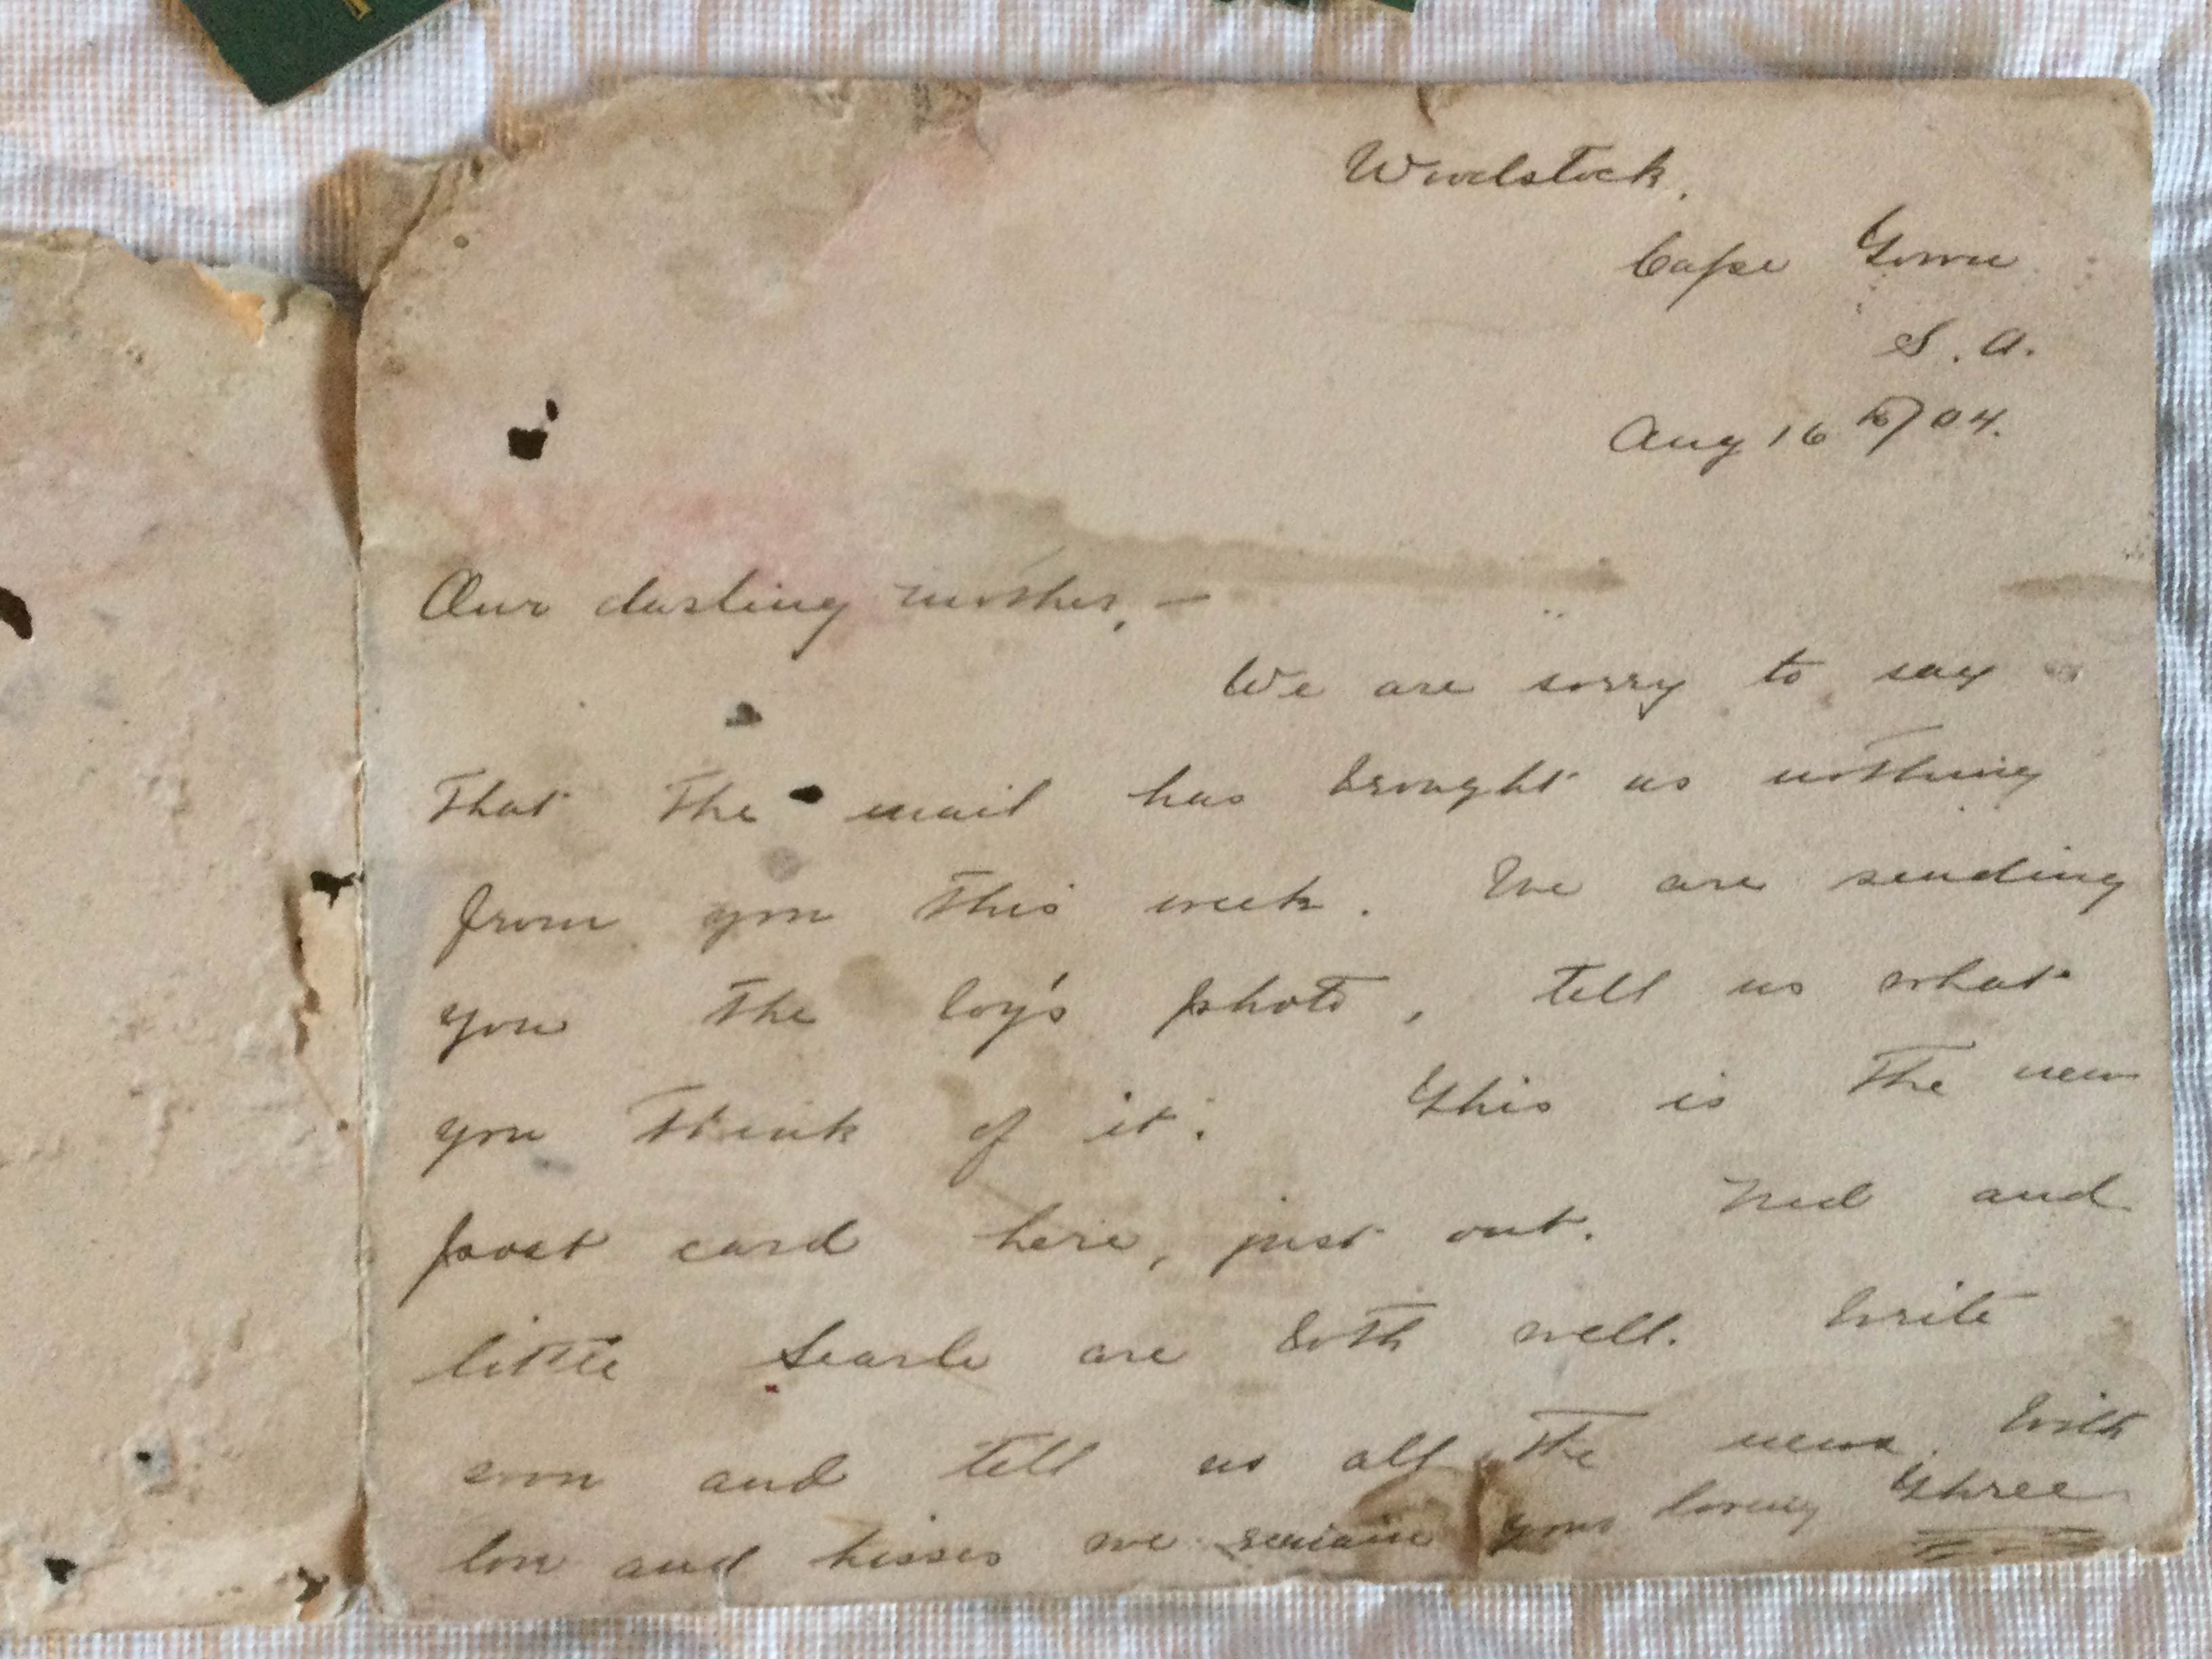 Woodstock,
Cape Town
S. A.
Aug 16th/04.
Our darling mother, —
We are sorry to say
that the mail has brought us nothing
from you this week. We are sending
you the boy's photo, tell us what
you think of it. This is the new
post card here, just out. Ned and
little Searle are both well. Write
soon and tell us all the news. With
love and kisses we remain your loving Three